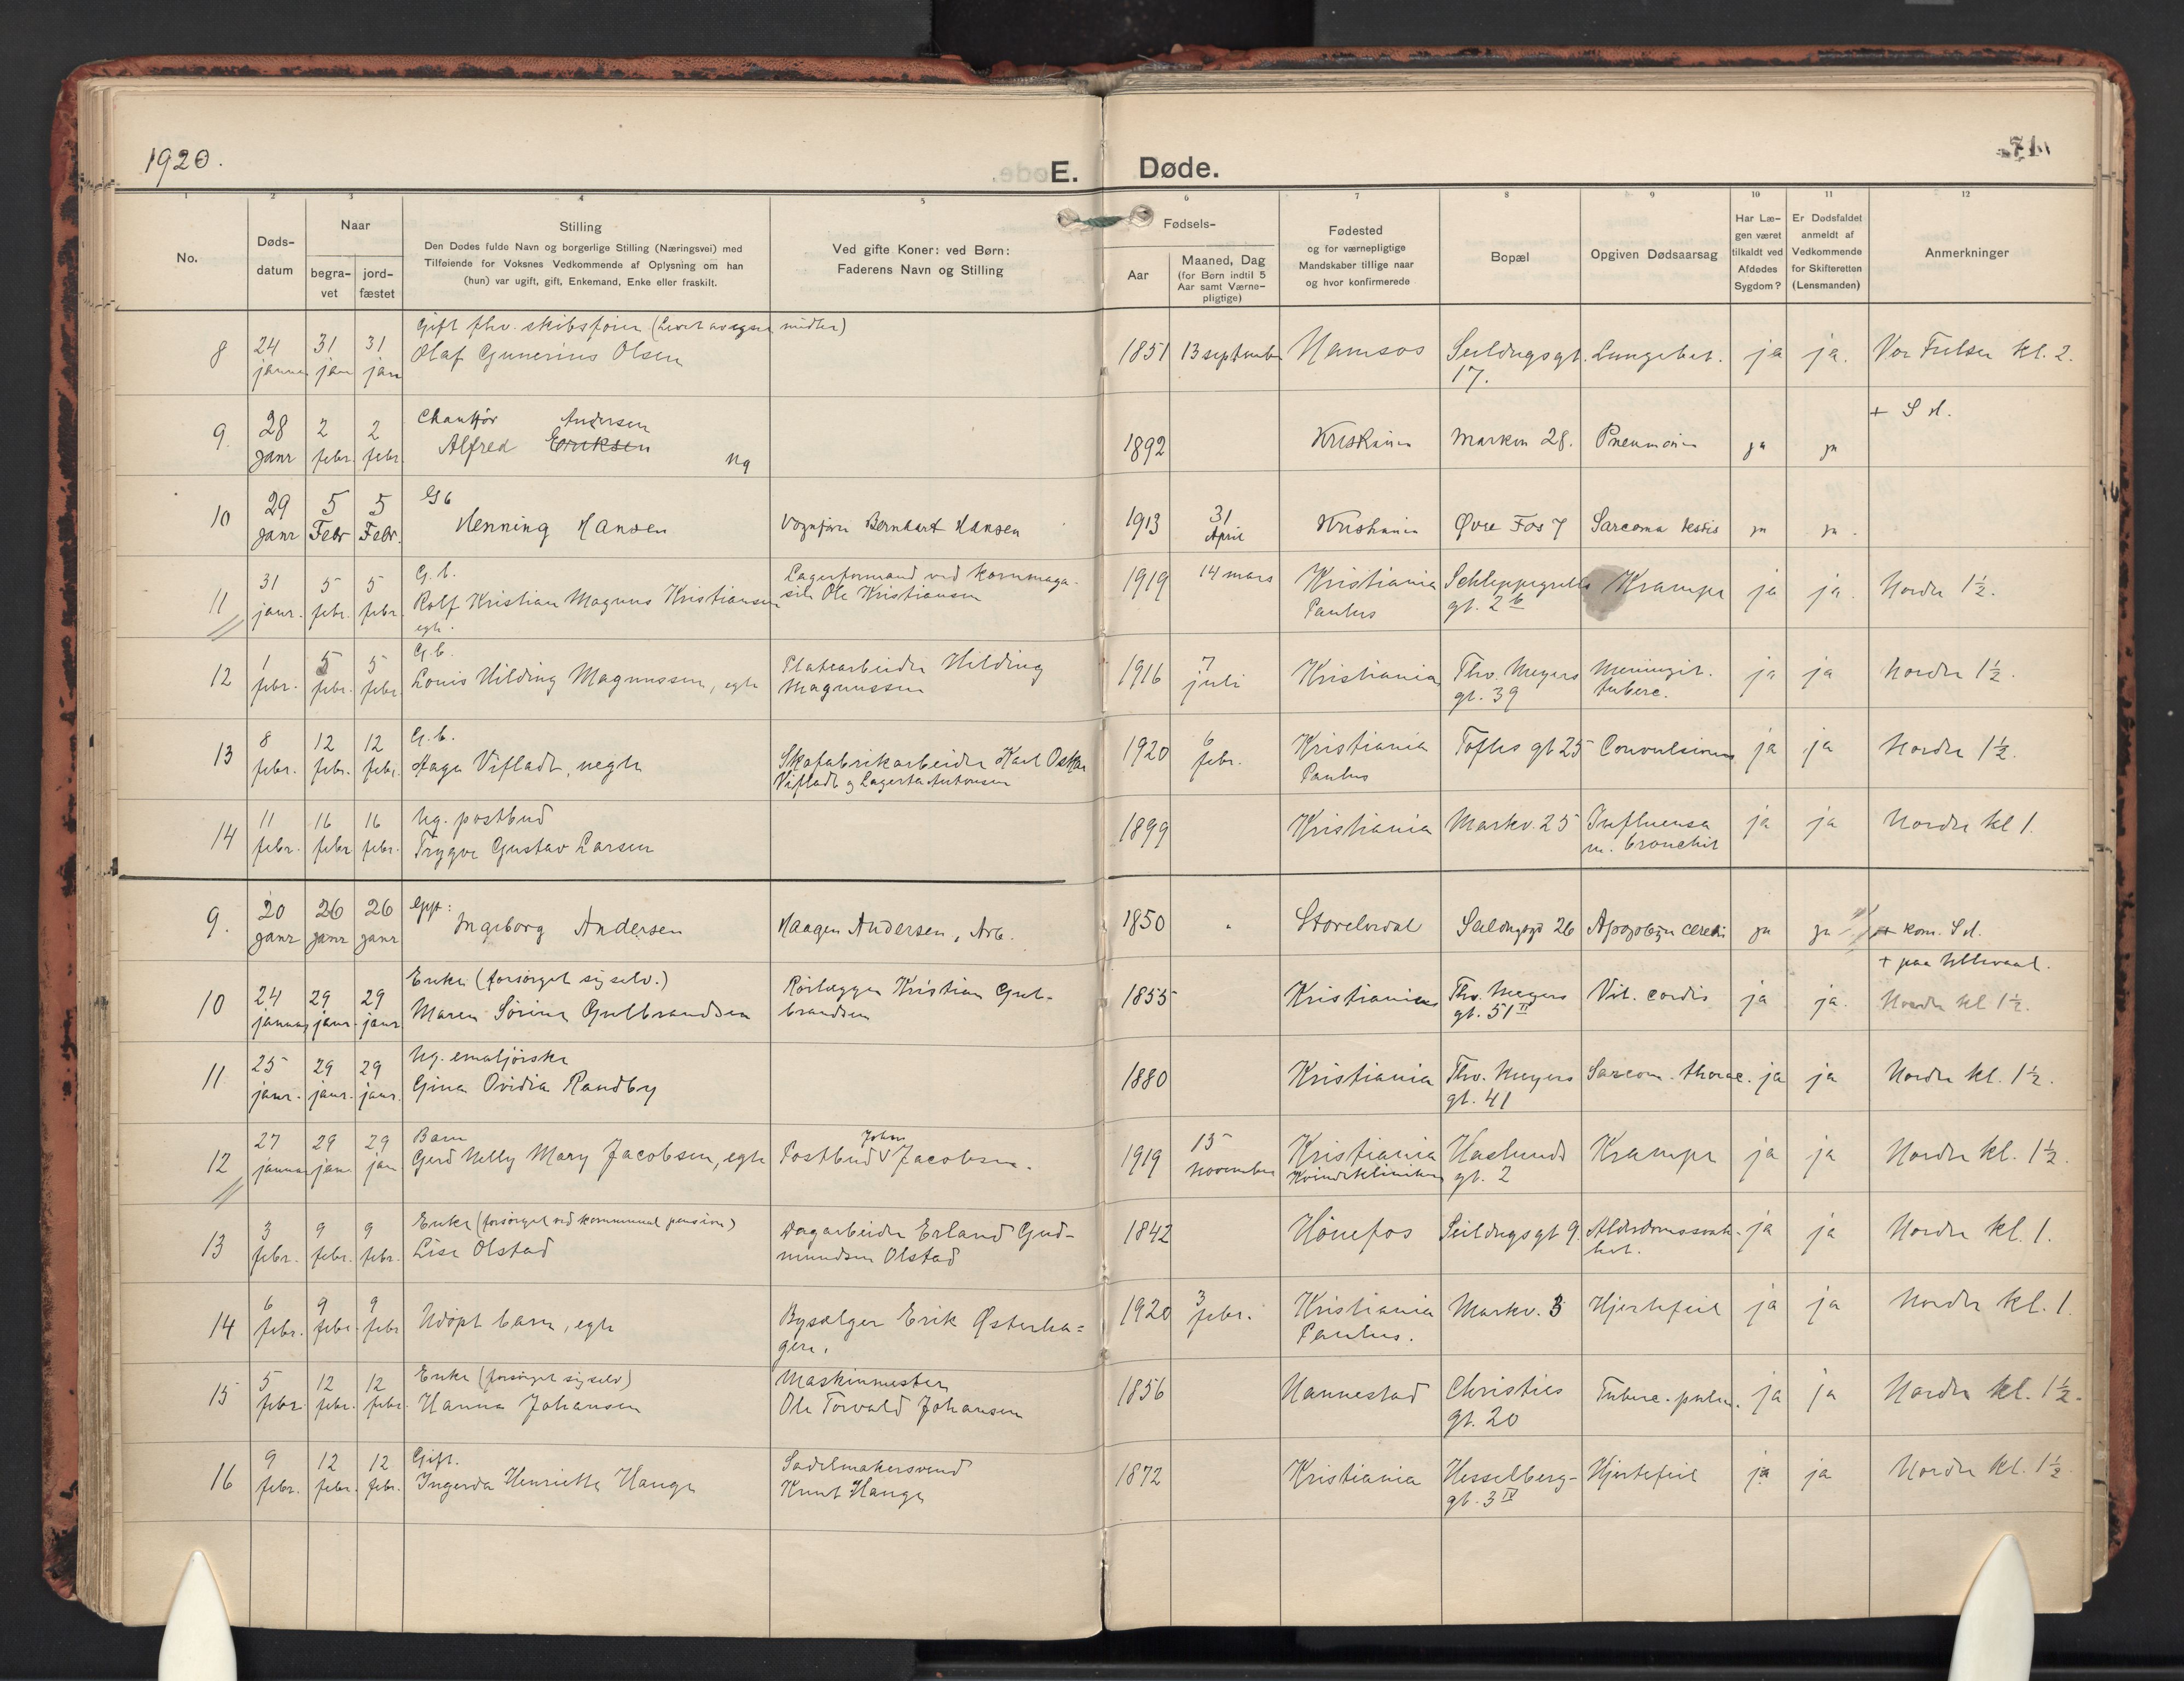 1920.
E. Døde.
71
1 2 3 4 5 6 7 8 9 10 11 12
No.
Døds-
datum
Naar
begra-
vet
jord-
fæstet
Stilling
Den Dødes fulde Navn og borgerlige Stilling (Næringsvei) med
Tilføiende for Voksnes Vedkommende af Oplysning om han
(hun) var ugift, gift, Enkemand, Enke eller fraskilt.
Ved gifte Koner: ved Børn:
Faderens Navn og Stilling
Fødsels-
Aar
Maaned, Dag
(for Børn indtil 5
Aar samt Værne-
pligtige)
Fødested
og for værnepligtige
Mandskaber tillige naar
og hvor konfirmerede
Bopæl
Opgiven Dødsaarsag
Har Læ-
gen været
tilkaldt ved
Afdødes
Sygdom?
Er Dødsfaldet
anmeldt af
Vedkommende
for Skifteretten
(Lensmanden)
Anmerkninger
Gift fhv. skibsfører (Levet av egne midler)
8 24 31 31 Olaf Gunerius Olsen 1851 13 september Namsos Seildugsgt. Lungebet. ja ja. Vor Frelser kl. 2.
januar jan jan 17.
+ S d.
Chauffør Andersen
9. 28 2 2 Alfred Eriksen 1892 Kristiania Markvn 28. Pneumoni ja ja
janr febr. febr. ug
Gb
10 29 5 5 Henning Hansen Vognfører Bernhart Hansen 1913 31 Kristiania Øvre Fos 7 Sarcoma testis ja ja.
janr Febr Febr. April
G. b. Lagerformand ved kornmaga-
11 31 5 5 Rolf Kristian Magnus Kristiansen sin Ole Kristiansen 1919 14 mars Kristiania Schleppegrells Krampe ja ja. Nordre 1½.
janr. febr. febr. egte. Paulus gt. 2b
G. b.
12 1 5 5 Louis Hilding Magnussen, egte Platearbeider Hilding 1916 7 Kristiania Thv. Meyers Meningit. ja ja Nordre 1½.
febr. febr. febr Magnussen juli gt. 39 tuberc.
G. b.
13 8 12 12 Aage Vifladt, uegte Skofabrikarbeider Karl Oskar 1920 6 Kristiania Toftes gt 25 Convulsiones ja ja Nordre 1½.
febr. febr. febr. Vifladt og Lagerta Antonsen febr. Paulus
14 11 16 16 Ug. postbud 1899 Kristiania Markv. 25 Influensa ja ja Nordre kl 1.
febr. febr febr. Trygve Gustav Larsen m. bronchit
9. 20 26 26 Gift: Ingeborg Andersen Haagen Andersen, Arb. 1850 Storelvdal Seildugsgt 26 Apoplexia cerebri ja ja + kom. S d.
janr janr janr
+ paa Ullevaal.
Enke (forsørget sig selv.)
10 24 29 29 Maren Sørine Gulbrandsen Rørlægger Kristian Gul- 1855 Kristiania Thv. Meyers Vit. cordis ja ja. Nordre kl 1½.
januar janr. janr brandsen gt. 51 II
11 25 29 29 Ug. emaljørske 1880 Kristiania Thv. Meyers Sarcom. thorac. ja ja Nordre kl. 1½.
janr. janr. janr. Gina Ovidia Randby gt. 41
Barn John
12 27 29 29 Gerd Nelly Mary Jacobsen, egte Postbud Jacobsen. 1919 15 Kristiania Haslunds Krampe ja ja Nordre kl. 1½.
januar jan jan november Kvindeklinikken gt. 2
Enke (forsørget ved kommunal pension)
13 3 9 9 Lise Olstad Dagarbeider Erland Gud- 1842 Hønefos Seildugsgt 9. Alderdomssvak- ja ja Nordre kl. 1.
febr. febr. febr. mundsen Olstad het.
14 6 9 9 Udøpt barn, egte Bysælger Erik Østerha= 1920 3 Kristiania Markv. 3 Hjertefeil ja ja Nordre kl. 1.
febr. febr. febr gen. febr. Paulus.
Enke (forsørget sig selv) Maskinmester
15 5 12 12 Hanna Johansen Ole Torvald Johansen 1856 Hannestad Christies Tuberc. pulm. ja ja Nordre kl. 1½.
febr. febr. febr. gt. 20
Gift. Sadelmakersvend
16 9 12 12 Ingerda Henriette Hauge Knut Hauge 1872 Kristiania Hesselberg- Hjertefeil ja ja Nordre kl. 1½.
febr. febr. febr. gt. 3 IV